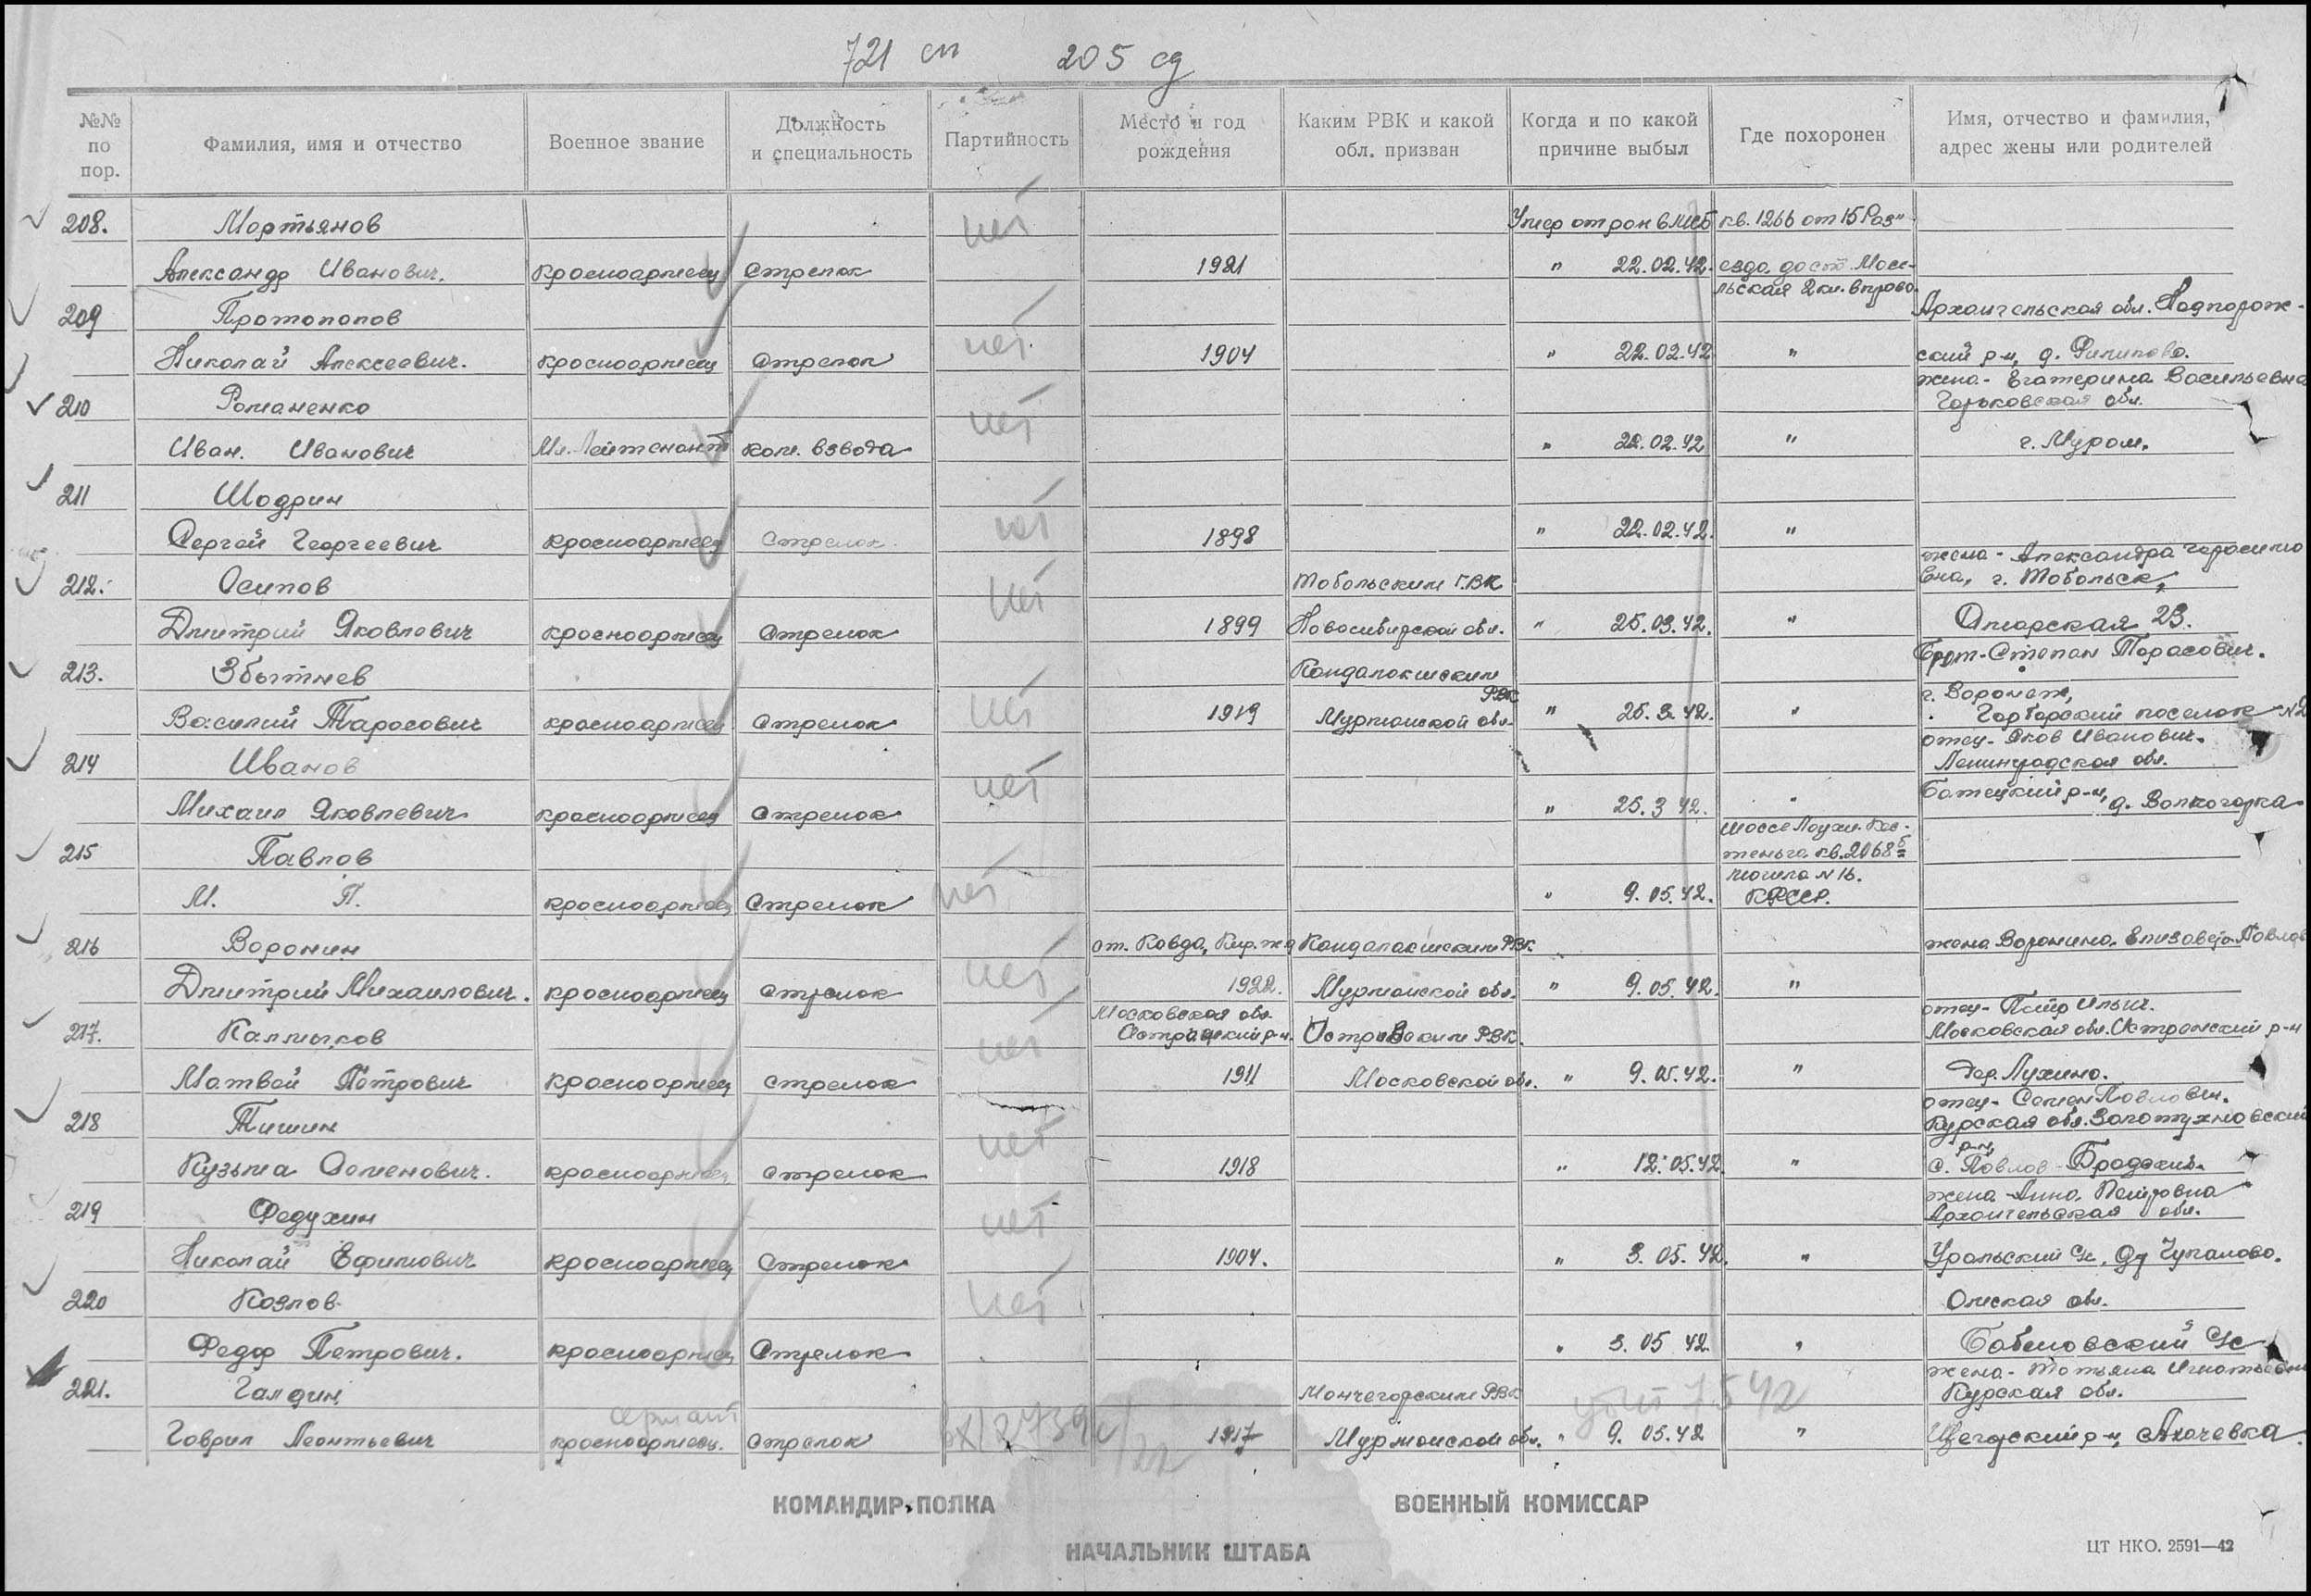 721 сп 205 сд
№№ по пор.
Фамилия, имя и отчество
Военное звание
Должность и специальность
Партийность
Место и год рождения
Каким РВК и какой обл. призван
Когда и по какой причине выбыл
Где похоронен
Имя, отчество и фамилия, адрес жены или родителей
208. Мартьянов нет Умер от ран в МСБ кв. 1266 от 15 Раз"
Александр Иванович. красноармеец Стрелок 1921 " 22.02.42. езда
льская 2 км. вправо.
209 Протопопов Архангельская обл.
Николай Алексеевич. красноармеец Стрелок нет 1904 " 22.02.42 " ский р-н, д. Филипово.
жена - Екатерина Васильевна
210 Романенко нет Горьковская обл.
Иван Иванович Мл. Лейтенант ком. взвода " 22.02.42 " г. Муром.
211 Шадрин
Сергей Георгиевич красноармеец Стрелок нет 1898 " 22.02.42. "
жена - Александра Герасимо
212. Осипов нет Тобольским ГВК вна, г. Тобольск,
Дмитрий Яковлевич красноармеец Стрелок 1899 Новосибирской обл. " 25.03.42. " 23.
Брат - Степан Тарасович.
213. Збытнев Кандалакшским РВК г. Воронеж,
Василий Тарасович красноармеец Стрелок нет 1919 Мурманской обл. " 25.3.42. " поселок N2
отец - Яков Иванович.
214 Иванов нет Ленинградская обл.
Михаил Яковлевич красноармеец Стрелок " 25.3 42. " Батецкий р-н, д.
шоссе Лоухи - Кес-
215 Павлов теньга кв. 2068б
могила N 16.
М. П. красноармеец Стрелок нет " 9.05.42. КФССР.
216 Воронин ст. Ковда, Кир. ж д Кандалакшским РВК жена Воронина Елизавета Павлов
Дмитрий Михайлович. красноармеец Стрелок нет 1922. Мурманской обл. " 9.05.42. "
Московская обл. отец - Петр Ильич.
217. Калмыков нет Истринский р-н. РВК. Московская обл. Истринский р-н
Матвей Петрович красноармеец Стрелок 1911 Московской обл. " 9.05.42. " дер. Лужино.
отец - Семен Павлович.
218 Тишин нет Курская обл. Золотухновский
р-н,
Кузьма Семенович. красноармеец Стрелок 1918 " 12.05.42. " с. Павлов -
жена - Анна Петровна
219 Федухин нет Архангельская обл.
Николай Ефимович красноармеец Стрелок 1904. " 3.05.42. "
220 Козлов нет Омская обл.
Федор Петрович. красноармеец Стрелок " 3.05 42. "
жена - Татьяна Игнатьевна
221. Галдин Мончегорским РВК убит 7.5 42 Курская обл.
сержант
Гаврил Леонтьевич красноармеец. Стрелок 1917 Мурманской обл. " 9.05.42 "
КОМАНДИР ПОЛКА ВОЕННЫЙ КОМИССАР
НАЧАЛЬНИК ШТАБА
ЦТ НКО. 2591—42